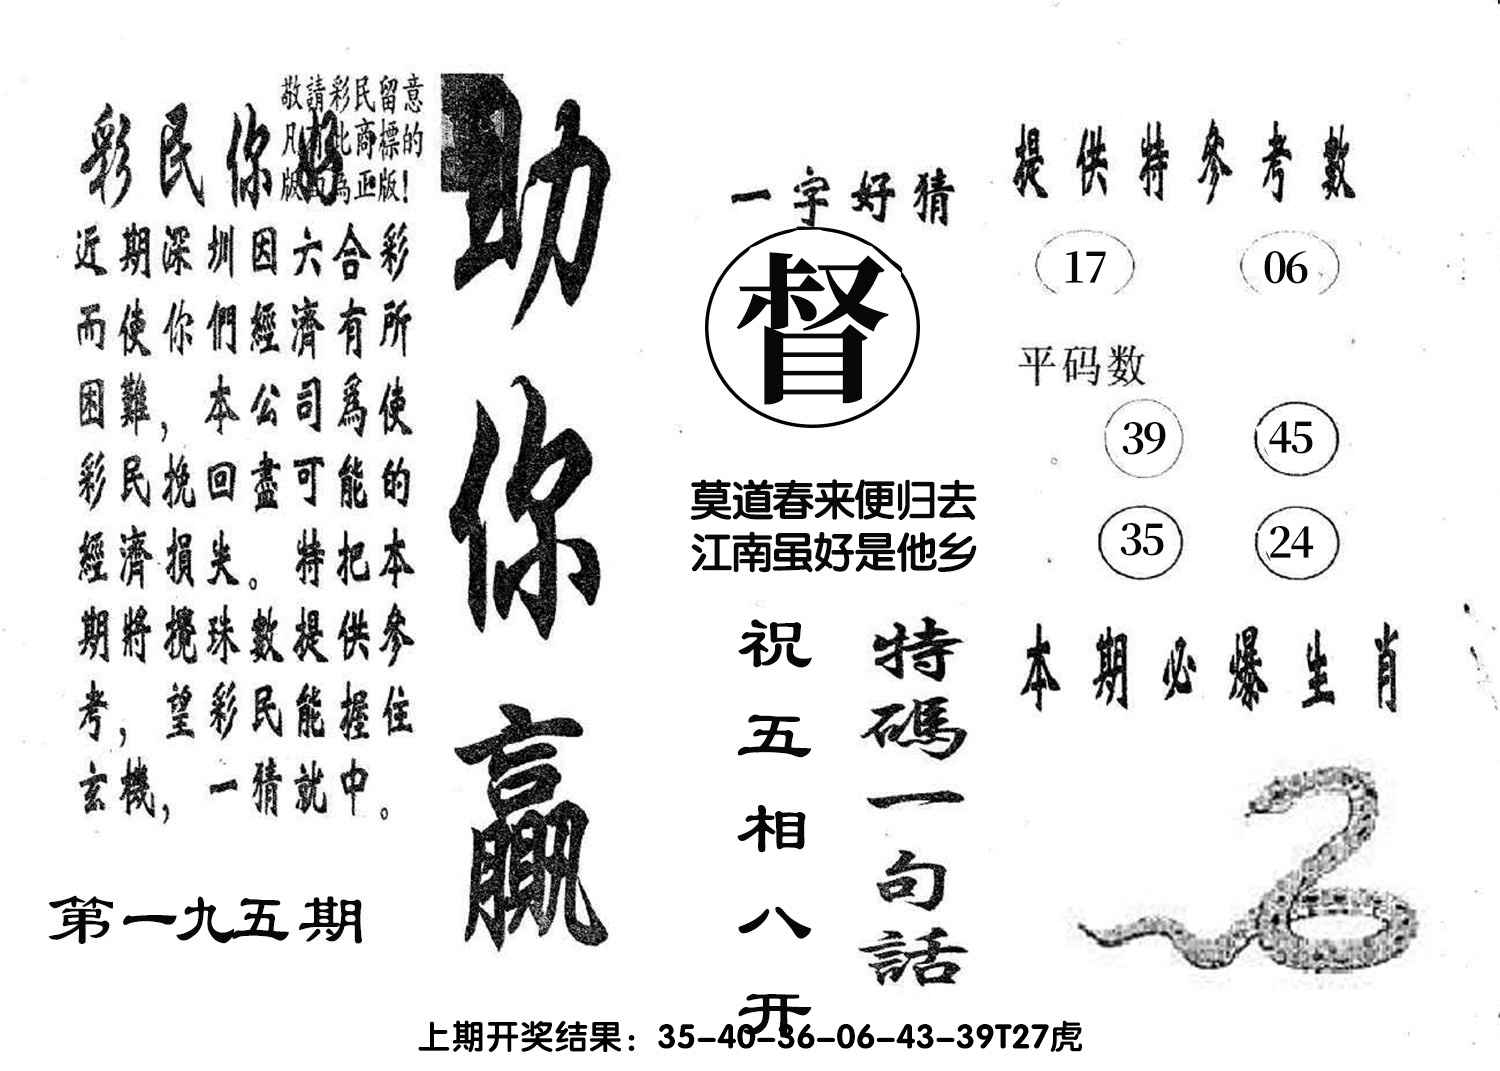 敬請彩民留意
凡有此商標的
版面為正版！
彩民你好
近期深圳因六合彩
而使你們經濟有所
困難，本公司爲使
彩民挽回盡可能的
經濟損失。特把本
期將攪珠數提供參
考，望彩民能握住
玄機，一猜就中。
第一九五期
助你贏
一字好猜
督
莫道春来便归去
江南虽好是他乡
特碼一句話
祝五相八开
提供特參考數
17 06
平码数
39 45
35 24
本期必爆生肖
上期开奖结果：35-40-36-06-43-39T27虎